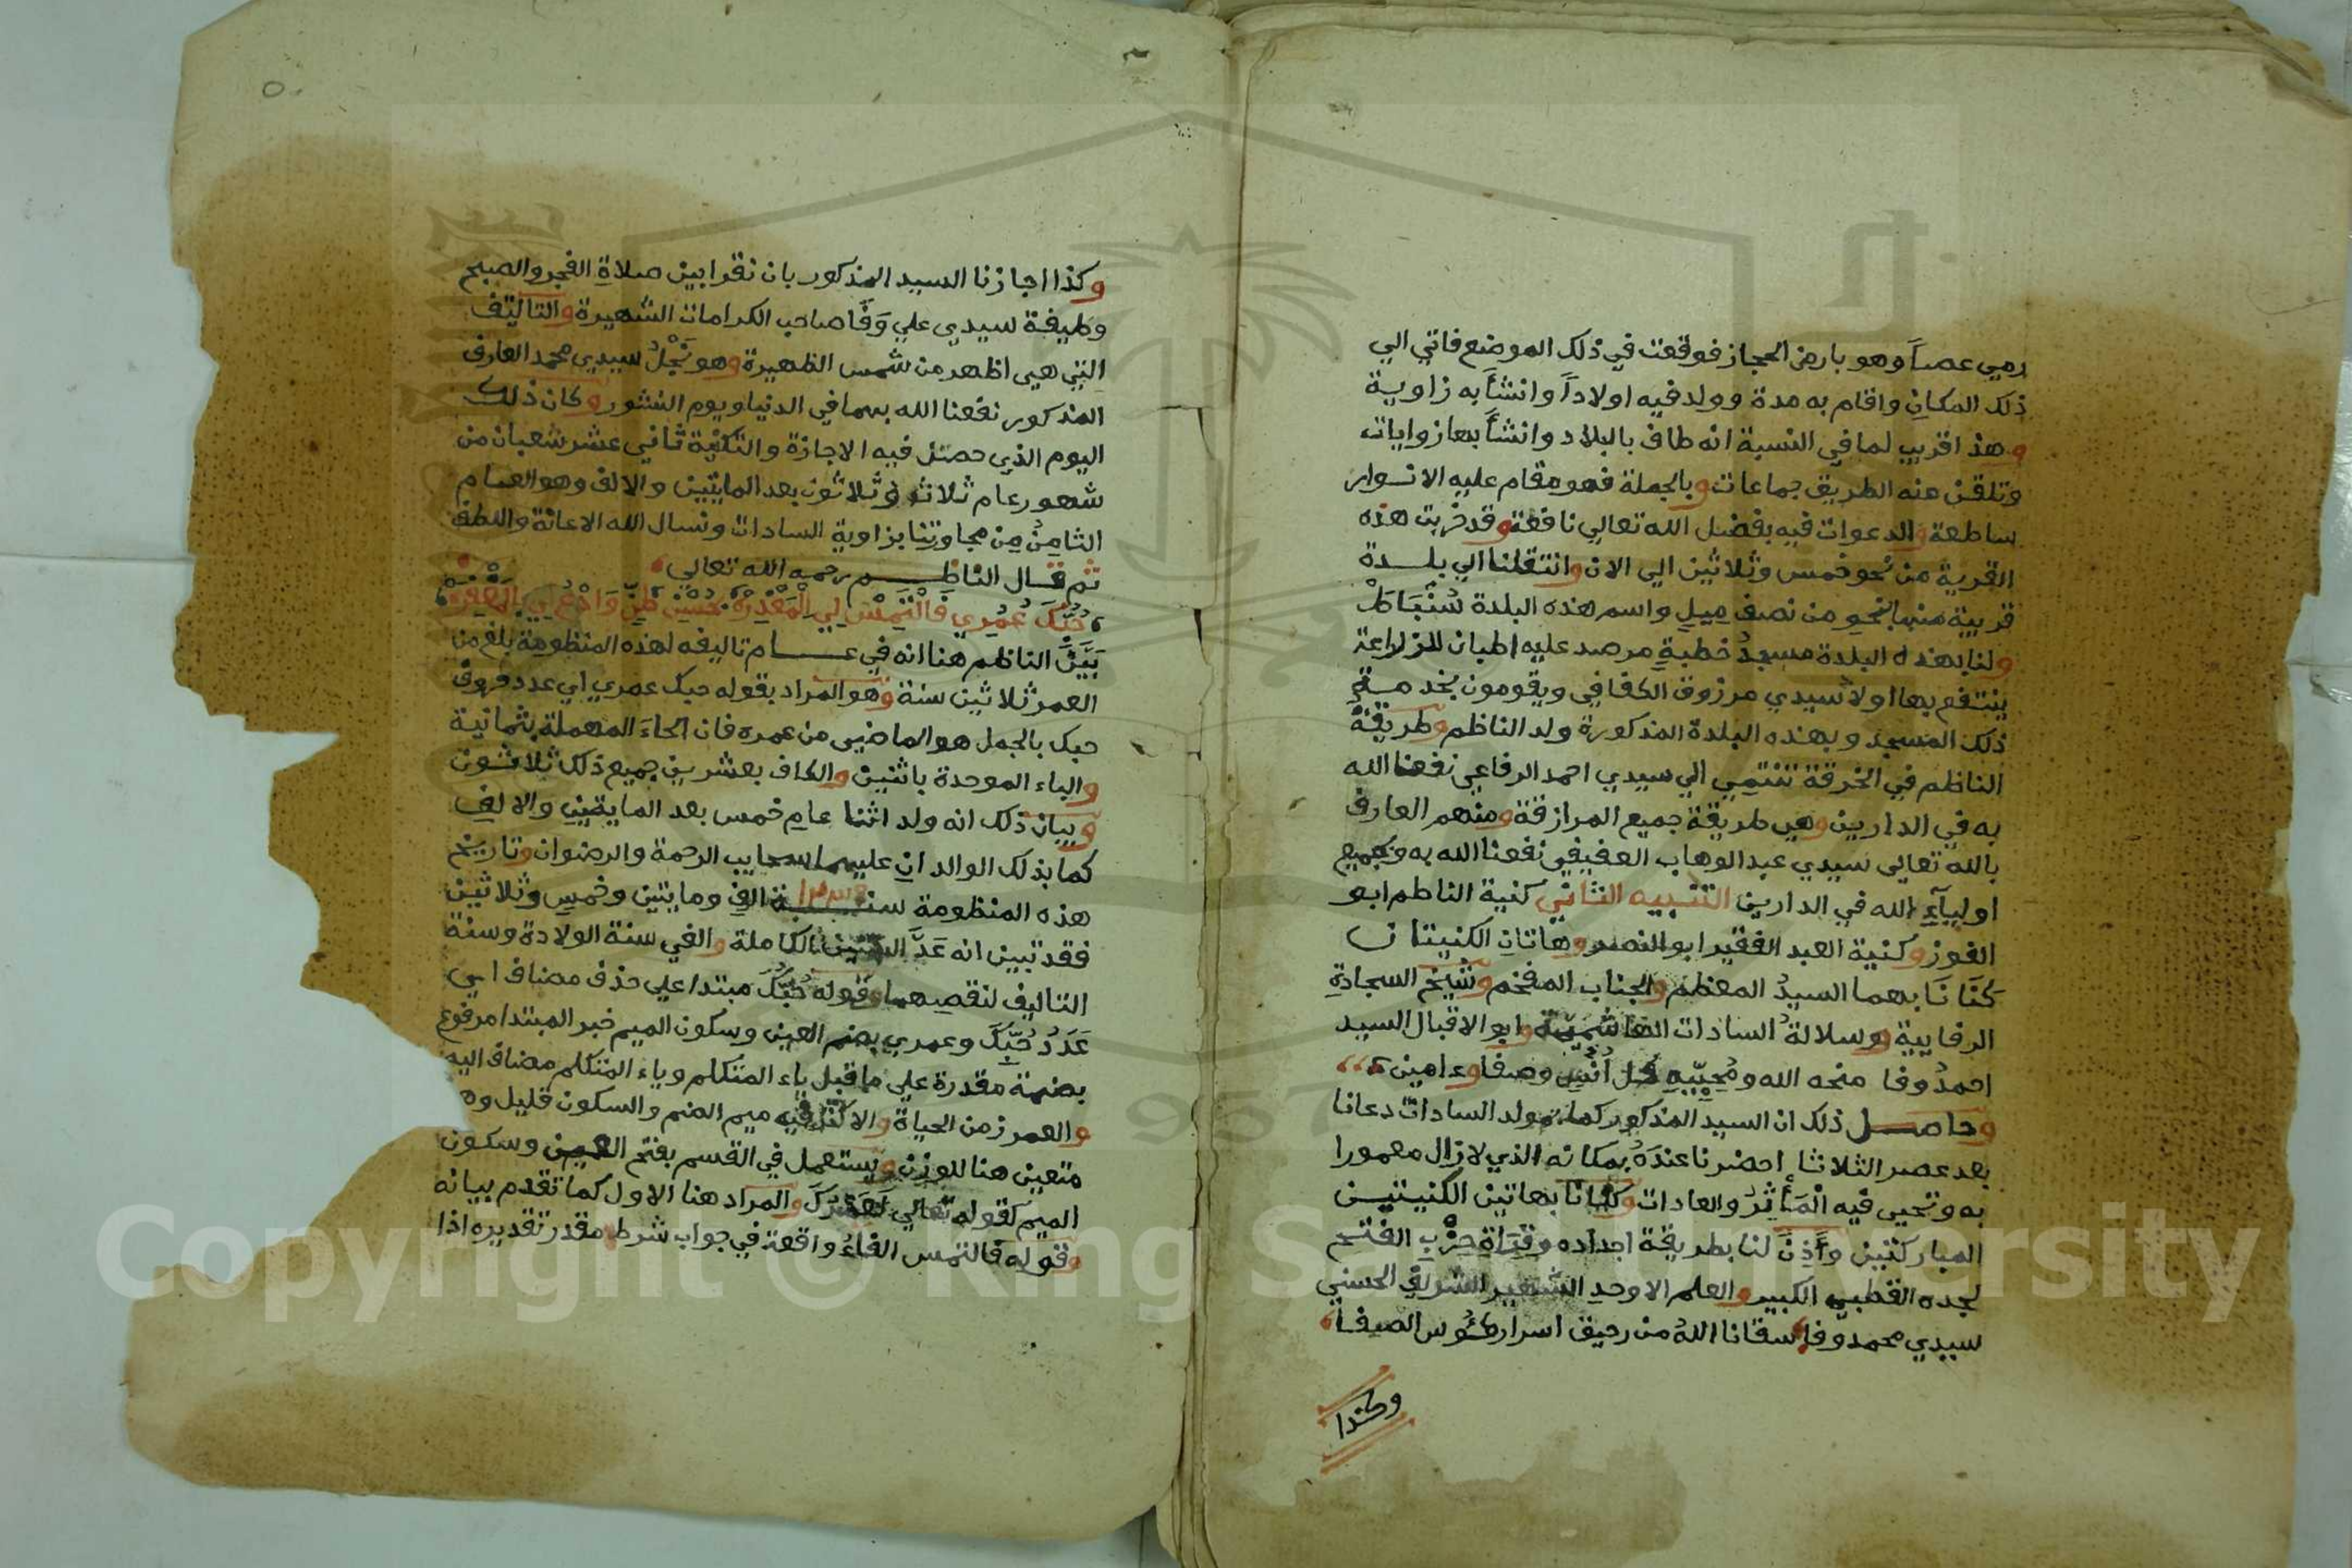 رمي عصاً وهو بارض الحجاز فوقعت في ذلك الموضع فاتي الي
ذلك المكانِ واقام به مدة وولد فيه اولاداً وانشأ به زاوية
وهذ اقريب لما في النسبة انه طاف بالبلاد وانشأ بها زوايات
وتلقن منه الطريق جماعات وبالجملة فهو مقام عليه الانوار
ساطعة والدعوات فيه بفضل الله تعالي نافعة وقد خربت هذه
القرية من نحو خمس وثلاثين الي الان وانتقلنا الي بلدة
قريبة منها بنحوِ من نصف ميلٍ واسم هذه البلدة سُنْبَاطْ
ولنا بهذه البلدة مسجدُ خطبةٍ مرصد عليه اطيان للزراعة
ينتفع بها اولاد سيدي مرزوق الكفافي ويقومون بخدمة
ذلك المسجد وبهذه البلدة المذكورة ولد الناظم وطريقة
الناظم في الخرقة تنتمي الي سيدي احمد الرفاعي نفعنا الله
به في الدارين وهي طريقة جميع المرازقة ومنهم العارف
بالله تعالى سيدي عبد الوهاب العفيفي نفعنا الله به وبجميع
اوليآءِ الله في الدارين التنبيه الثاني كنية الناظم ابو
الفوز وكنية العبد الفقير ابو النصر وهاتانِ الكنيتان
كنَّانَا بهما السيدُ المعظم والجناب المفخم وشيخ السجادةِ
الوفايية وسلالةُ السادات الهاشمية وابو الاقبال السيد
احمدُ وفا منحه الله ومُحِبِّيهِ كل اُنْسٍ وصفاء امين
وحاصل ذلك ان السيد المذكور كمل مولد السادات دعانا
بعد عصر الثلاثا احضرنا عندَهُ بمكانه الذي لازال معمورا
به وتحيى فيه الْمَأَثِرُ والعادات وكنانا بهاتين الكنيتين
المباركتين وأَذِنَ لنا بطريقة اجداده وقرأة حِزْبِ الفتح
لجده القطب الكبير والعلم الاوحدِ الشهير الشريف الحسني
سيدي محمد وفا سقانا اللهُ من رحيق اسرار كئوس الصفا
وكذا
وكذا اجازنا السيد المذكور بان نقرا بين صلاةِ الفجر والصبح
وظيفة سيدي علي وَفَا صاحب الكرامات الشهيرة والتاليف
التي هي اظهر من شمس الظهيرة وهو نَجْلُ سيدي محمد العارف
المذكور نفعنا الله بهما في الدنيا ويوم النشور وكان ذلك
اليوم الذي حصل فيه الاجازة والتكنية ثاني عشر شعبان من
شهور عام ثلاثه وثلاثون بعد المايتين والالف وهو العام
الثامنُ مِن مجاورتنا بزاوية السادات ونسال الله الاعانة واللطف
ثم قال الناظم رحمه الله تعالي
حُبُّكَ عُمْرِي فَالْتَمِسْ لِي الْمَعْذِرَهْ بِحُسْنِ ظَنٍّ وَادْعُ لِي بِالْمَغْفِرَهْ
بَيَّنَ الناظم هنا انه في عام تاليفه لهذه المنظومة بلغ من
العمر ثلاثين سنة وهو المراد بقوله حبك عمري اي عدد حروف
حبك بالجمل هو الماضي من عمره فان الحاءَ المهملة بثمانية
والباء الموحدة باثنين والكاف بعشرين جميع ذلك ثلاثون
وبيان ذلك انه ولد اثنا عامِ خمس بعد المايتين والالفِ
كما بذلك الوالدانِ عليهما سحايب الرحمة والرضوان وتاريخ
هذه المنظومة سنة الف ومايتين وخمسٍ وثلاثين
فقد تبين انه عَدَّ السنين الكاملة والغي سنة الولادة وسنة
التاليف لنقصهما وقوله حُبُّكَ مبتدا علي حذف مضاف اي
عَدَدُ حُبِّكَ وعمري بضم العين وسكون الميم خبر المبتدا مرفوع
بضمة مقدرة علي ما قبل ياء المتكلم وياء المتكلم مضاف اليه
والعمر زمن الحياة والاكثر فيه ميم الضم والسكون قليل وهو
متعين هنا للوزن ويستعمل في القسم بفتح العين وسكون
الميم كقوله تعالي لَعَمْرُكَ والمراد هنا الاول كما تقدم بيانه
وقوله فالتمس الفاءُ واقعة في جواب شرط مقدر تقديره اذا
Copyright © King Saud University